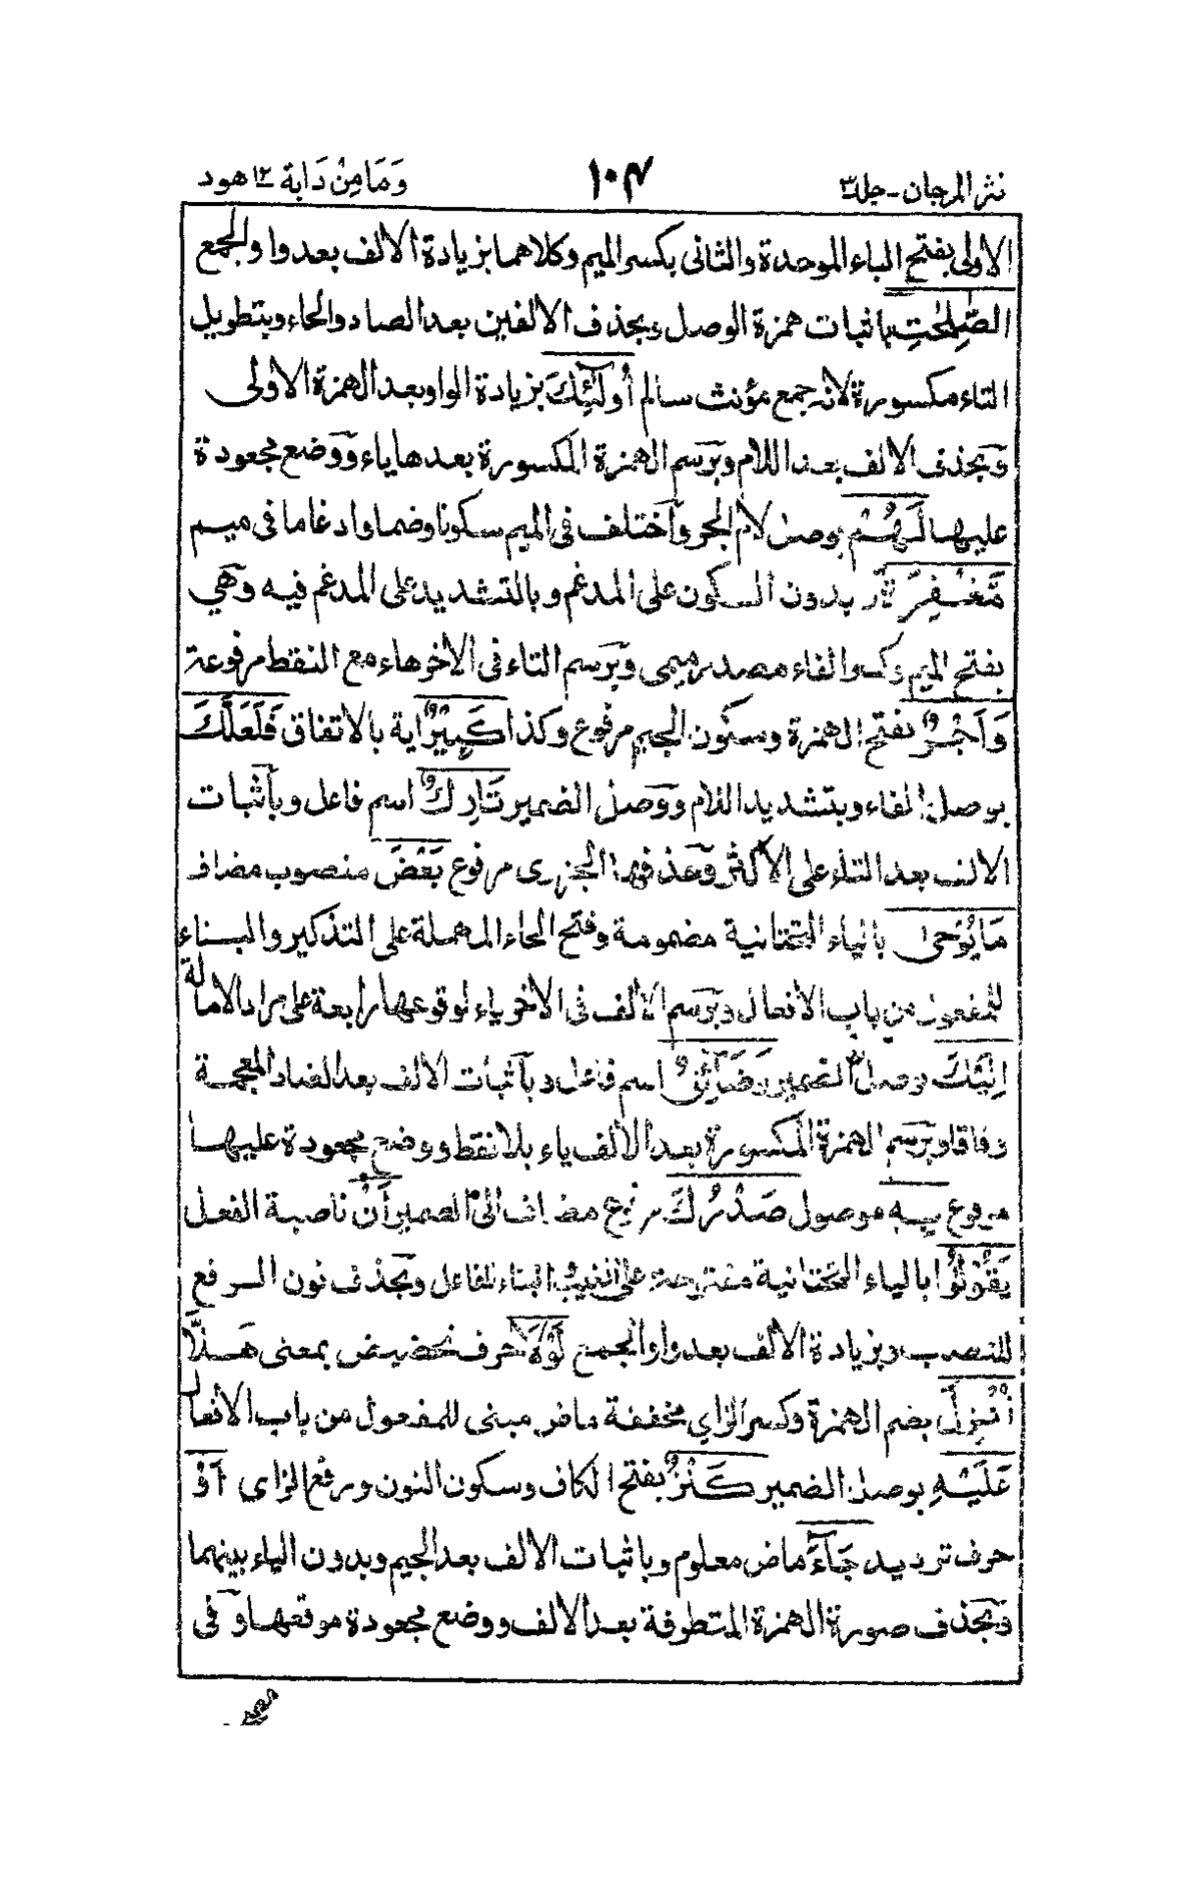 نثر المرجان - جلد ٣
١٠٤
وَمَا مِنْ دَابة ١٢ هود
الاولى بفتح الباء الموحدة والثانى بكسر الميم وكلاهما بزيادة الالف بعد واو الجمع
الصّٰلِحٰتِ باثبات همزة الوصل وبحذف الالفين بعد الصاد والحاء وبتطويل
التاء مكسورة لانه جمع مؤنث سالم أُولٰٓئِكَ بزيادة الواو بعد الهمزة الاولى
وبحذف الالف بعد اللام وبرسم الهمزة المكسورة بعدها ياء ووضع مجعودة
عليها لَهُمْ بوصل لام الجر واختلف فى الميم سكونا وضما وادغاما فى ميم
مَّغْفِرَةٌ بدون السكون على المدغم وبالتشديد على المدغم فيه وهي
بفتح الميم وكسر الفاء مصدر ميمى وبرسم التاء فى الاخر هاء مع النقط مرفوعة
وَاَجْرٌ بفتح الهمزة وسكون الجيم مرفوع وكذا كَبِيْرٌ اية بالاتفاق فَلَعَلَّكَ
بوصل الفاء وبتشديد اللام ووصل الضمير تَارِكٌ اسم فاعل وباثبات
الالف بعد التاء على الاكثر وحذفها الجزرى مرفوع بَعْضَ منصوب مضاف
مَا يُوْحٰى بالياء التحتانية مضمومة وفتح الحاء المهملة على التذكير والبناء
للمفعول من باب الافعال وبرسم الالف فى الاخر ياء لوقوعها رابعة على مراد الامالة
اِلَيْكَ بوصل الضمير وَضَآئِقٌ اسم فاعل وباثبات الالف بعد الضاد المعجمة
وفاقا وبرسم الهمزة المكسورة بعد الالف ياء بلا نقط ووضع مجعودة عليها
مرفوع بِهٖ موصول صَدْرُكَ مرفوع مضاف الى الضمير أَنْ ناصبة الفعل
يَقُوْلُوْا بالياء التحتانية مفتوحة على الغيب والبناء للفاعل وبحذف نون الرفع
للنصب وبزيادة الالف بعد واو الجمع لَوْلَا حرف تحضيض بمعنى هَلَّا
اُنْزِلَ بضم الهمزة وكسر الزاي مخففة ماض مبنى للمفعول من باب الافعال
عَلَيْهِ بوصل الضمير كَنْزٌ بفتح الكاف وسكون النون ورفع الزاى اَوْ
حرف ترديد جَآءَ ماض معلوم وباثبات الالف بعد الجيم وبدون الياء بينهما
وبحذف صورة الهمزة المتطرفة بعد الالف ووضع مجعودة موقعها وفى